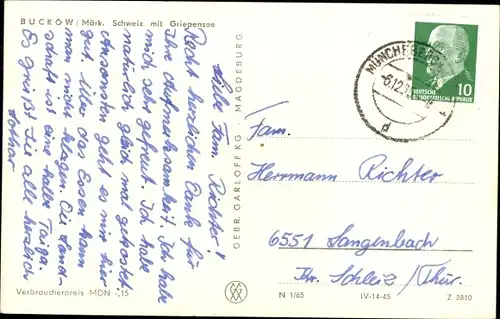 BUCKOW/Märk. Schweiz mit Griepensee
Liebe Fam. Richter!
Recht herzlichen Dank für
Ihre Aufmerksamkeit. Ich habe
mich sehr gefreut. Ich habe
natürlich gleich mal gekostet.
Ansonsten geht es mir hier
gut. Über das Essen kann
man nicht klagen. Die Land-
schaft ist eine halbe Taiga.
Es grüßt Sie alle herzlich
Lothar
Verbraucherpreis MDN -,15
GEBR. GARLOFF KG · MAGDEBURG
MÜNCHEBERG
-6.12.
d
10
DEUTSCHE
DEMOKRATISCHE REPUBLIK
Fam.
Herrmann Richter
6551 Langenbach
Kr. Schleiz/Thür.
N 1/65 IV-14-45 Z 2810